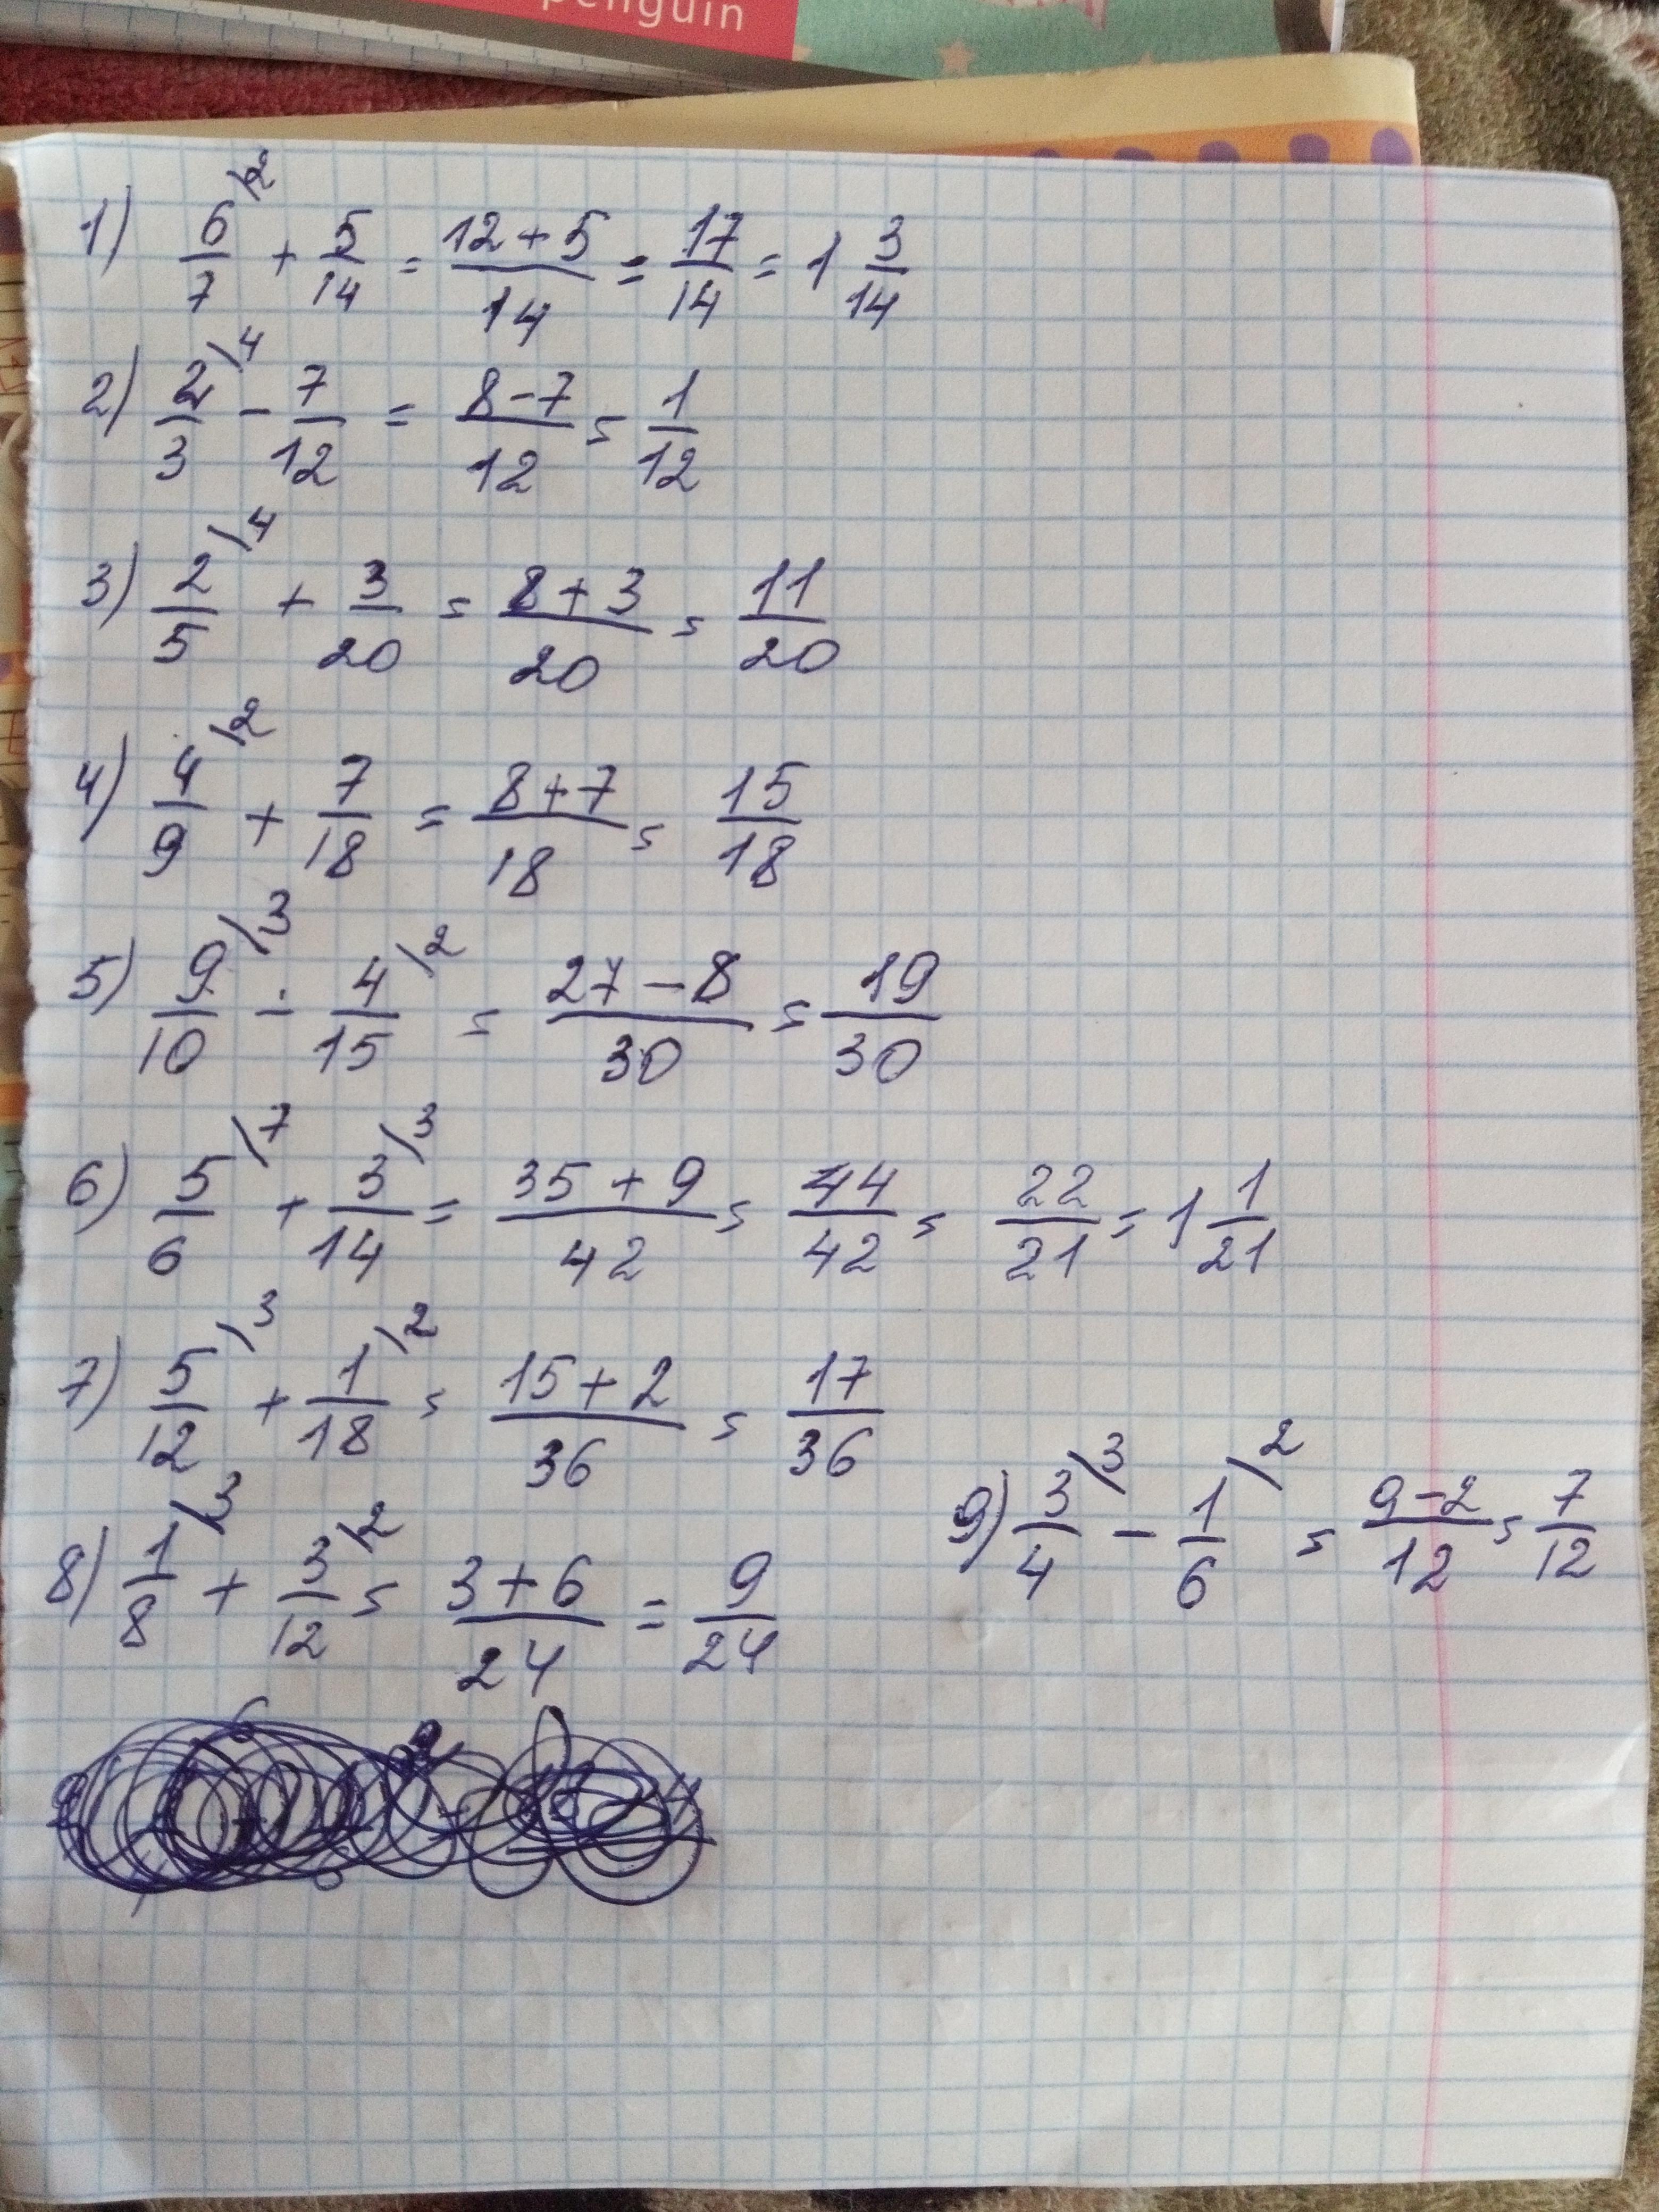 penguin
1) 6/7 \2 + 5/14 = 12+5/14 = 17/14 = 1 3/14
2) 2/3 \4 - 7/12 = 8-7/12 = 1/12
3) 2/5 \4 + 3/20 = 8+3/20 = 11/20
4) 4/9 \2 + 7/18 = 8+7/18 = 15/18
5) 9/10 \3 - 4/15 \2 = 27-8/30 = 19/30
6) 5/6 \7 + 3/14 \3 = 35+9/42 = 44/42 = 22/21 = 1 1/21
7) 5/12 \3 + 1/18 \2 = 15+2/36 = 17/36
8) 1/8 \3 + 3/12 \2 = 3+6/24 = 9/24
9) 3/4 \3 - 1/6 \2 = 9-2/12 = 7/12